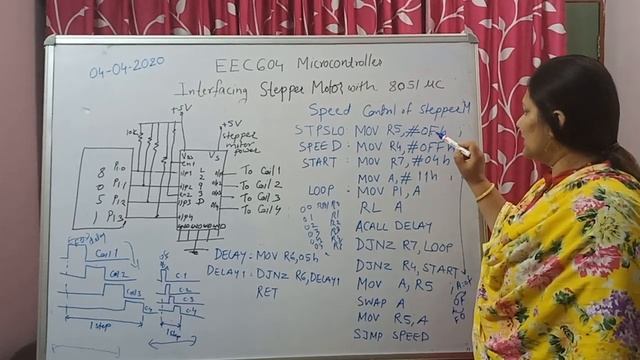 04-04-2020
EEC604 Microcontroller
Interfacing Stepper Motor with 8051 µC
+5V
+5V
stepper
motor
power
10K
Vss
Vs
En1
8 P1.0
0 P1.1
5 P1.2
1 P1.3
i/p1
i/p2
En2
i/p3
i/p4
L
2
9
3
D
To Coil 1
To Coil 2
To Coil 3
To Coil 4
Coil 1
Coil 2
Coil 3
C4
1 step
C-1
C-2
C-3
C-4
1 step
DELAY: MOV R6, 05h
DELAY1: DJNZ R6, DELAY1
RET
Speed Control of Stepper M
STPSLO MOV R5, #0Fh
SPEED: MOV R4, #0FFh
START: MOV R7, #04h
MOV A, #11h
LOOP: MOV P1, A
RL A
ACALL DELAY
DJNZ R7, LOOP
DJNZ R4, START
MOV A, R5
SWAP A
MOV R5, A
SJMP SPEED